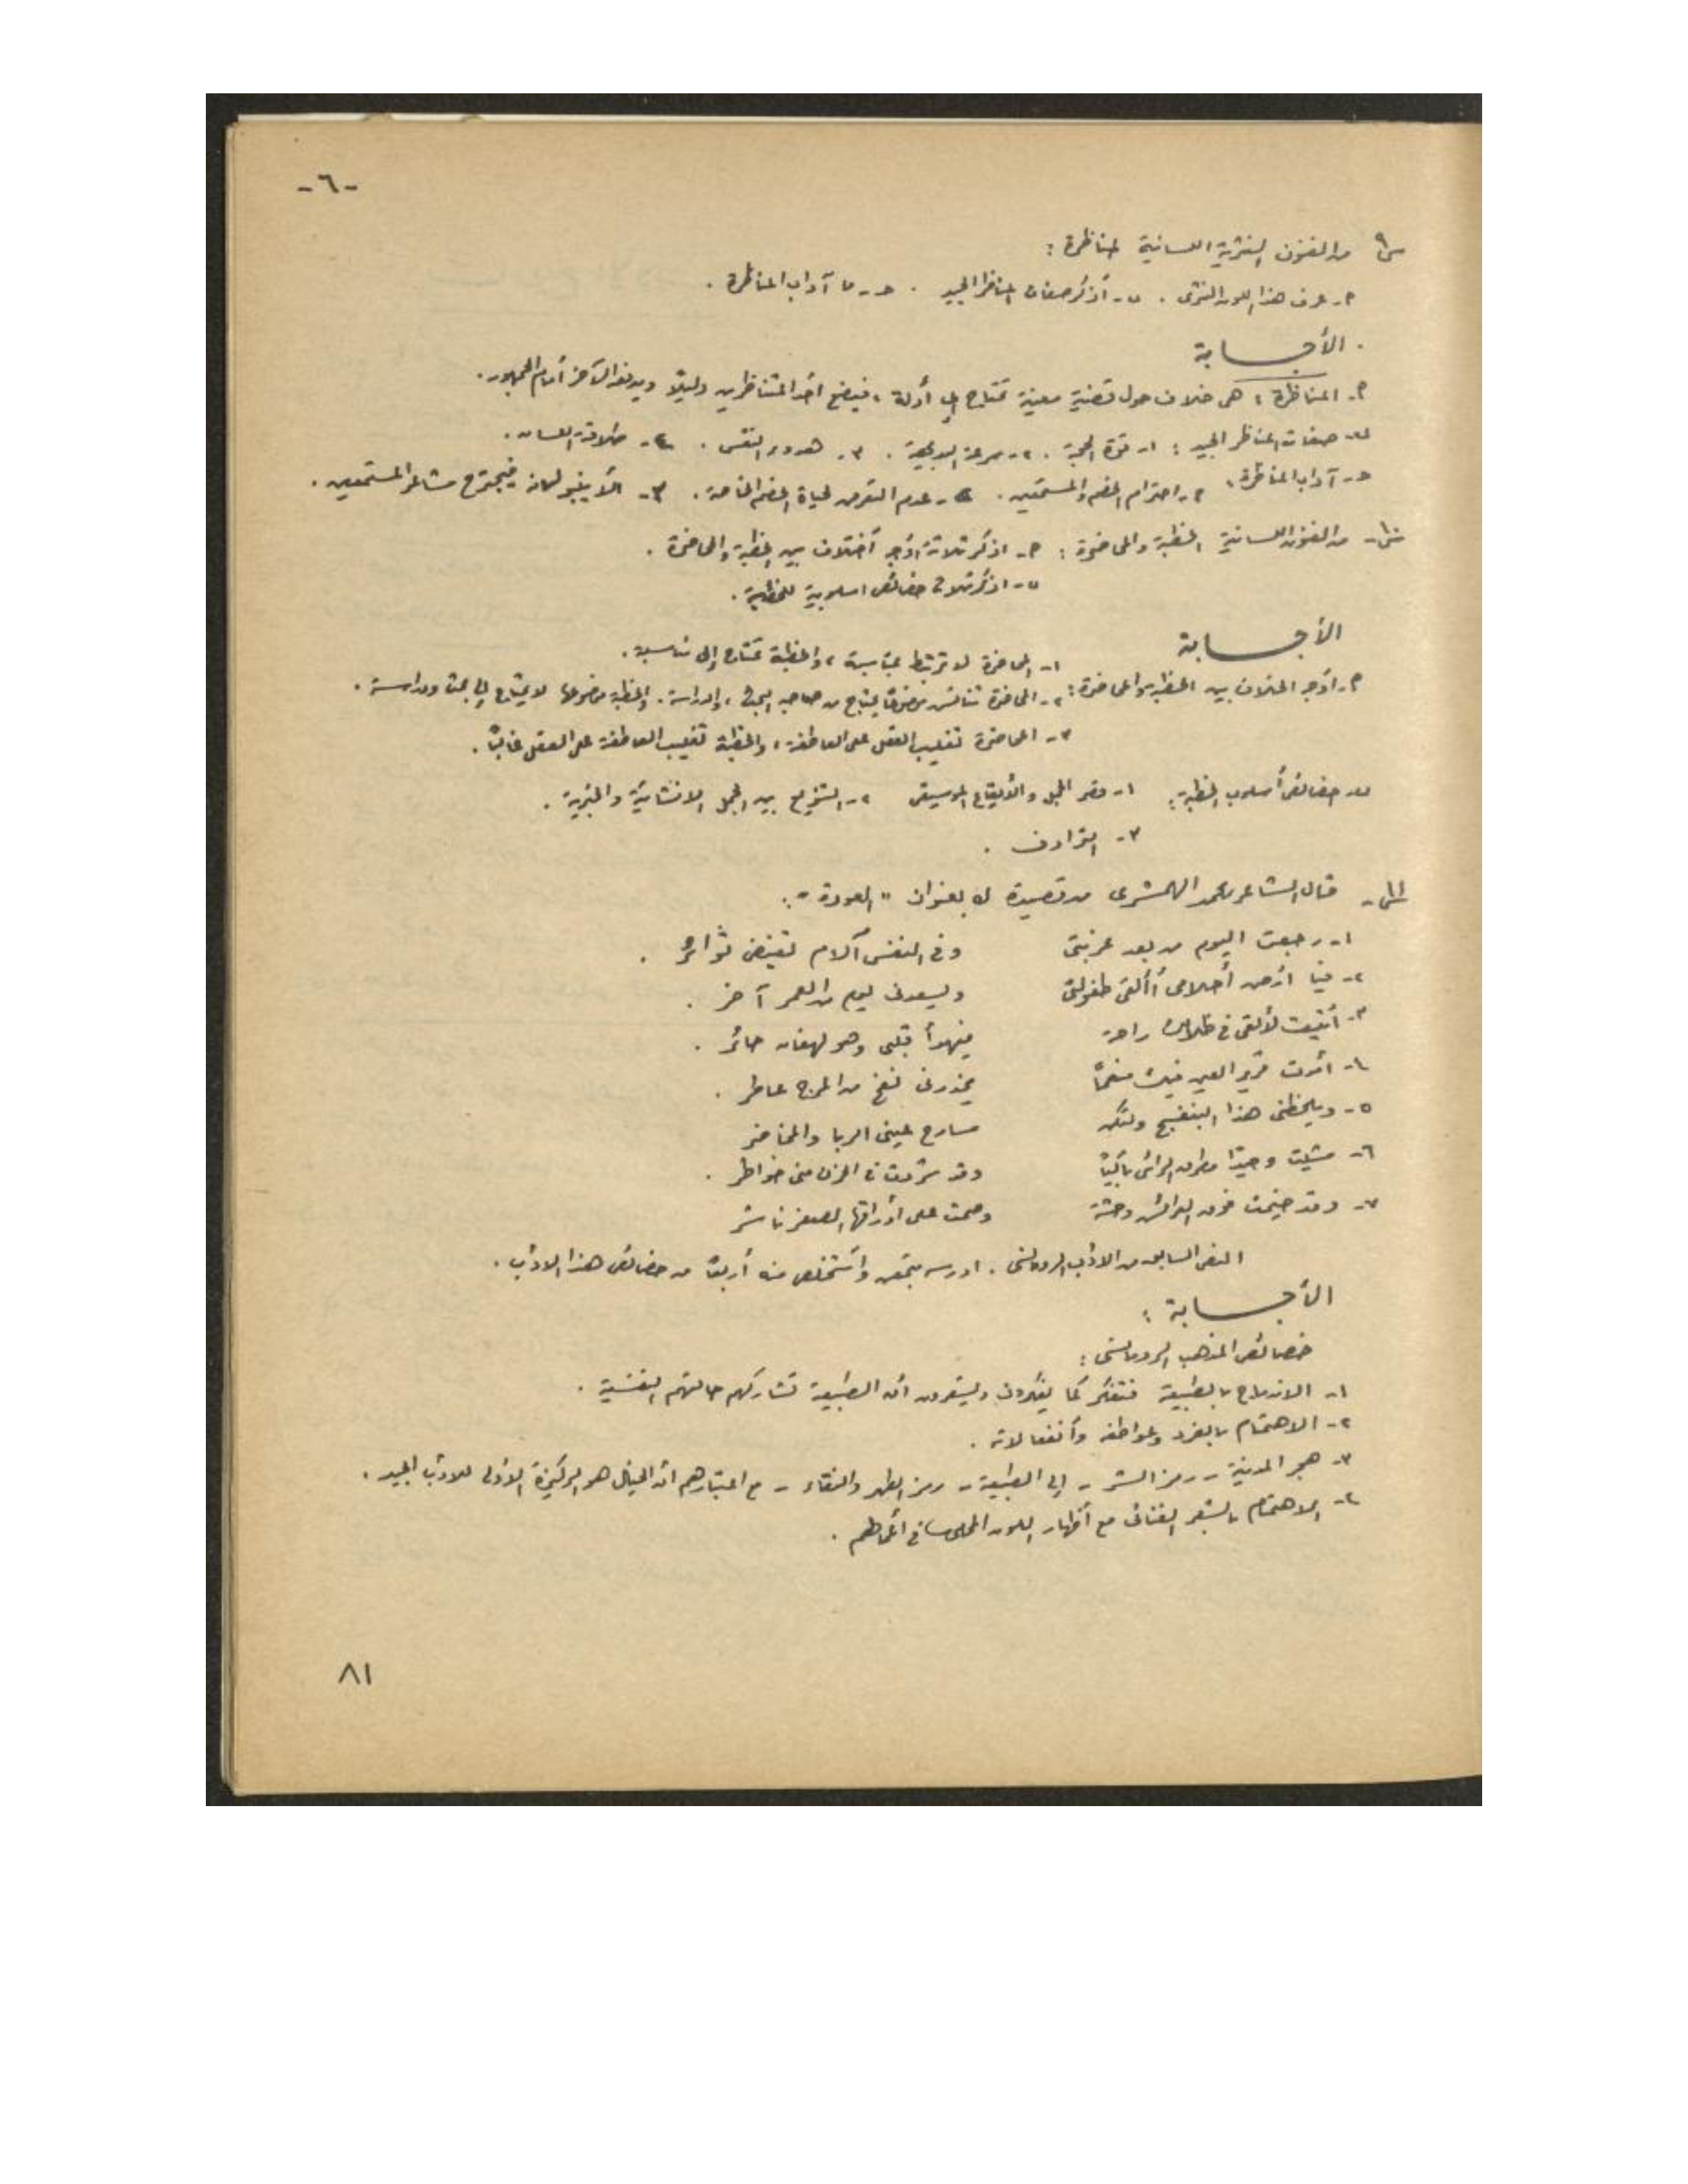 -٦-
س٩ من الفنون النثرية اللسانية المناظرة :
م- عرف هذا اللون النثرى . ب- أذكر صفات المناظر الجيد . حـ- ما آداب المناظرة .
. الأجـــابة
م- المناظرة : هى خلاف حول قضية معينة تحتاج إلى أدلة ، فيضع أحد المتناظرين دليلاً ويدفعه الآخر أمام الجمهور .
ب- صفات المناظر الجيد : ١- قوة الحجة . ٢- سرعة البديهة . ٣- هدوء النفس . ٤- طلاقة اللسان .
حـ- آداب المناظرة : م- احترام الخصم والمستمعين . ب- عدم التعرض لحياة الخصم الخاصة . ٣- ألا ينبو لسانه فيجترح مشاعر المستمعين .
س١٠- من الفنون اللسانية الخطبة والمحاضرة : م- اذكر ثلاثة أوجه أختلاف بين الخطبة والمحاضرة .
ب- اذكر ثلاث خصائص اسلوبية للخطبة .
الأجـــابة
١- المحاضرة لا ترتبط بمناسبة ، والخطبة تحتاج إلى مناسبة .
م- أوجه الخلاف بين الخطبة والمحاضرة : ٢- المحاضرة تناقش موضوعًا يحتاج من صاحبه البحث ، والدراسة . والخطبة موضوعها لا يحتاج إلى بحث ودراسة .
٣- المحاضرة تغليب العقل على العاطفة ، والخطبة تغليب العاطفة على العقل غالبًا .
ب- خصائص أسلوب الخطبة : ١- قصر الجمل والأيقاع الموسيقى ٢- التنويع بين الجمل الانشائية والخبرية .
٣- الترادف .
س١١- قال الشاعر محمد الهمشرى من قصيدة له بعنوان " العودة " :
١- رجعت اليوم من بعد غربتى وفى النفس آلام تفيض ثوائرُ .
٢- فيا أرض أحلامى أألقى طفولتى ويسعدنى يوم من العمر آخر .
٣- أتيت لألقى فى ظلالك راحة فيهدأ قلبى وهو لهفان حائر .
٤- أموت قرير العين فيك منعمًا يخدرنى نفح من المرج عاطر .
٥- ويلحظنى هذا البنفسج ولتكن مسارح عينى الربا والمخاضر
٦- مشيت وحيدًا مطرق الرأس باكيًا وقد شردت فى الحزن منى خواطر .
٧- وقد خيمت فوق العرائش وحشة وصمت على أوراقها الصفر ناشر
النص السابق من الادب الرومانسى . ادرسه بتمعن وأستخلص منه أربعًا من خصائص هذا الادب .
الأجـــابة :
خصائص المذهب الرومانسى :
١- الاندماج بالطبيعة فتفكر كما يفكرون ويشعرون أن الطبيعة تشاركهم حالتهم النفسية .
٢- الاهتمام بالفرد وعواطفه وأنفعالاته .
٣- هجر المدينة - رمز الشر - إلى الطبيعة - رمز الطهر والنقاء - مع اعتبارهم أن الخيال هو الركيزة الأولى للادب الجيد .
٤- الاهتمام بالشعر الغنائى مع أظهار اللون المحلى فى أنماطهم .
٨١